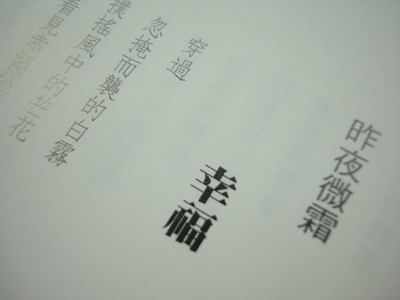 昨夜微霜
幸福
穿過
忽掩而襲的白霧
撲搖風中的芒花
看見幸